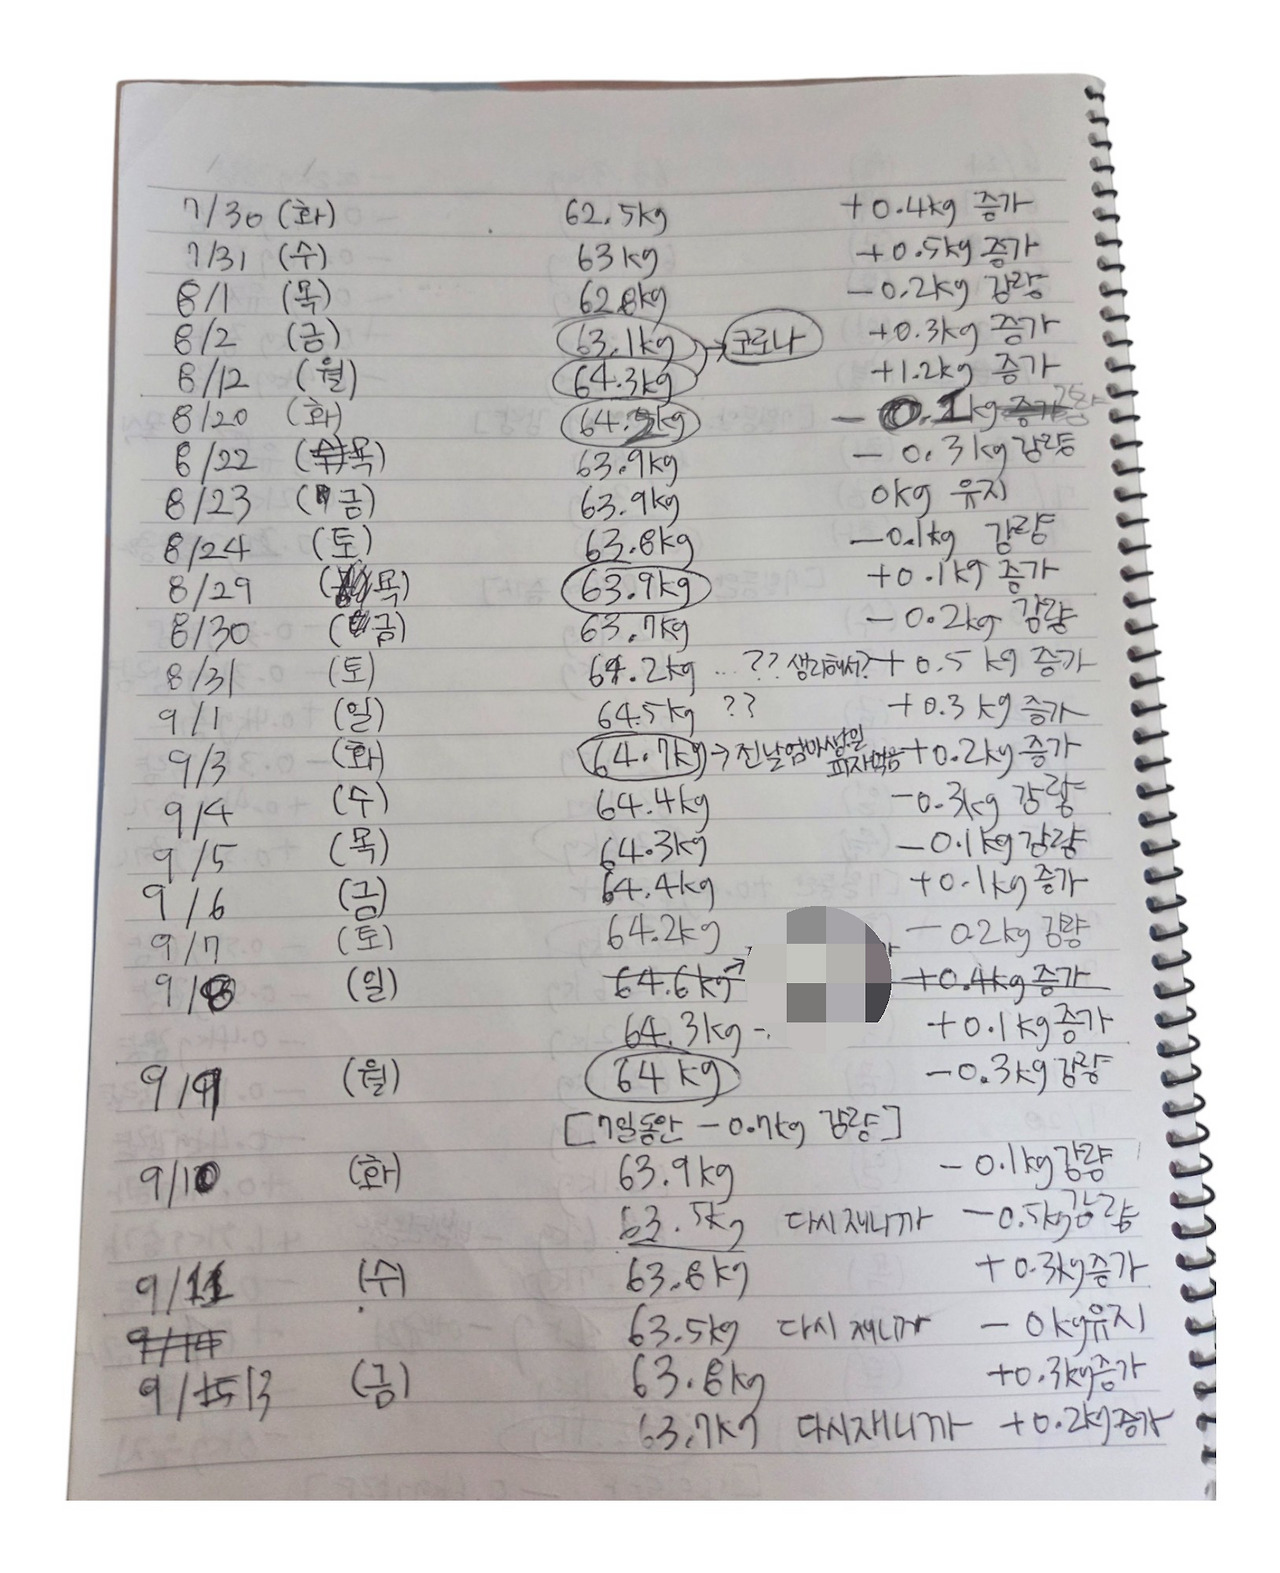 7/30 (화) 62.5kg +0.4kg 증가
7/31 (수) 63kg +0.5kg 증가
8/1 (목) 62.8kg -0.2kg 감량
8/2 (금) 63.1kg → 코로나 +0.3kg 증가
8/12 (월) 64.3kg +1.2kg 증가
8/20 (화) 64.2kg - 0.1kg 감량
8/22 (목) 63.9kg - 0.3kg 감량
8/23 (금) 63.9kg 0kg 유지
8/24 (토) 63.8kg -0.1kg 감량
8/29 (목) 63.9kg +0.1kg 증가
8/30 (금) 63.7kg -0.2kg 감량
8/31 (토) 64.2kg ...?? 생리해서? +0.5kg 증가
9/1 (일) 64.5kg ?? +0.3kg 증가
9/3 (화) 64.7kg → 전날엄마생일 피자먹음 +0.2kg 증가
9/4 (수) 64.4kg -0.3kg 감량
9/5 (목) 64.3kg -0.1kg 감량
9/6 (금) 64.4kg +0.1kg 증가
9/7 (토) 64.2kg -0.2kg 감량
9/8 (일) 64.6kg → +0.4kg 증가
64.3kg - +0.1kg 증가
9/9 (월) 64kg -0.3kg 감량
[7일동안 -0.7kg 감량]
9/10 (화) 63.9kg -0.1kg 감량
63.5kg 다시재니까 -0.5kg 감량
9/11 (수) 63.8kg +0.3kg 증가
9/14 63.5kg 다시 재니까 - 0kg 유지
9/13 (금) 63.8kg +0.3kg 증가
63.7kg 다시재니까 +0.2kg 증가